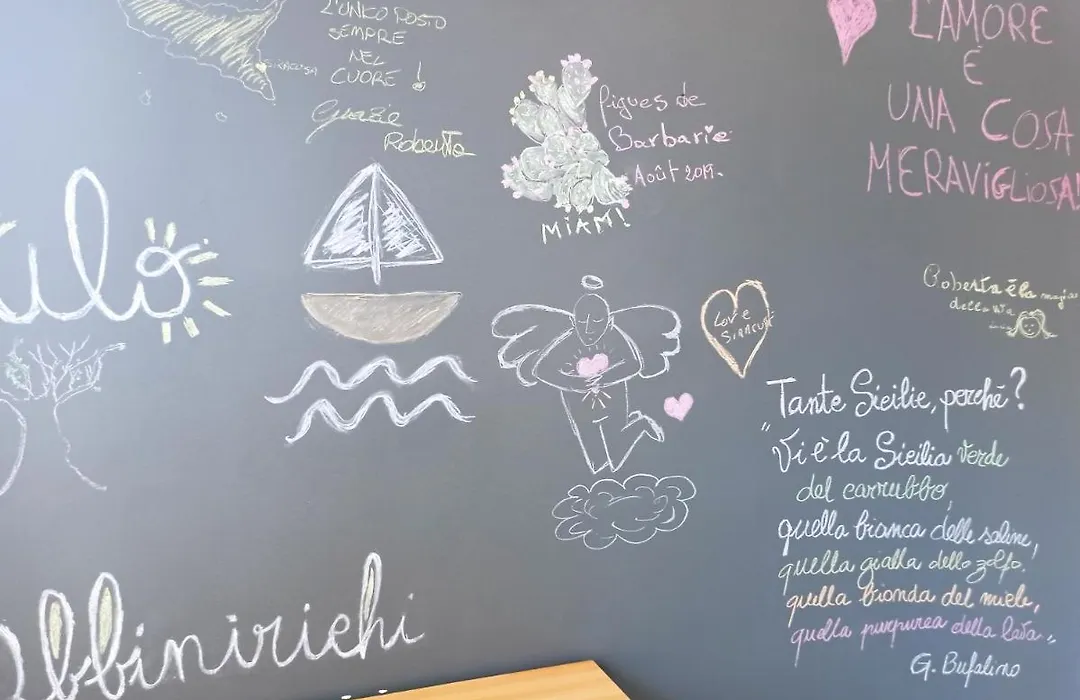 L'UNICO POSTO
SEMPRE
NEL
CUORE!
Grazie
Roberta
SIRACUSA
figues de
Barbarie
Août 2019.
MIAM!
L'AMORE
È
UNA COSA
MERAVIGLIOSA!
Love
SIRACUSA
Roberta è la magia
della vita
Tante Sicilie, perché?
"Vi è la Sicilia verde
del carrubbo,
quella bianca delle saline,
quella gialla dello zolfo.
quella bionda del miele,
quella purpurea della lava"
G. Bufalino
abbinirichi